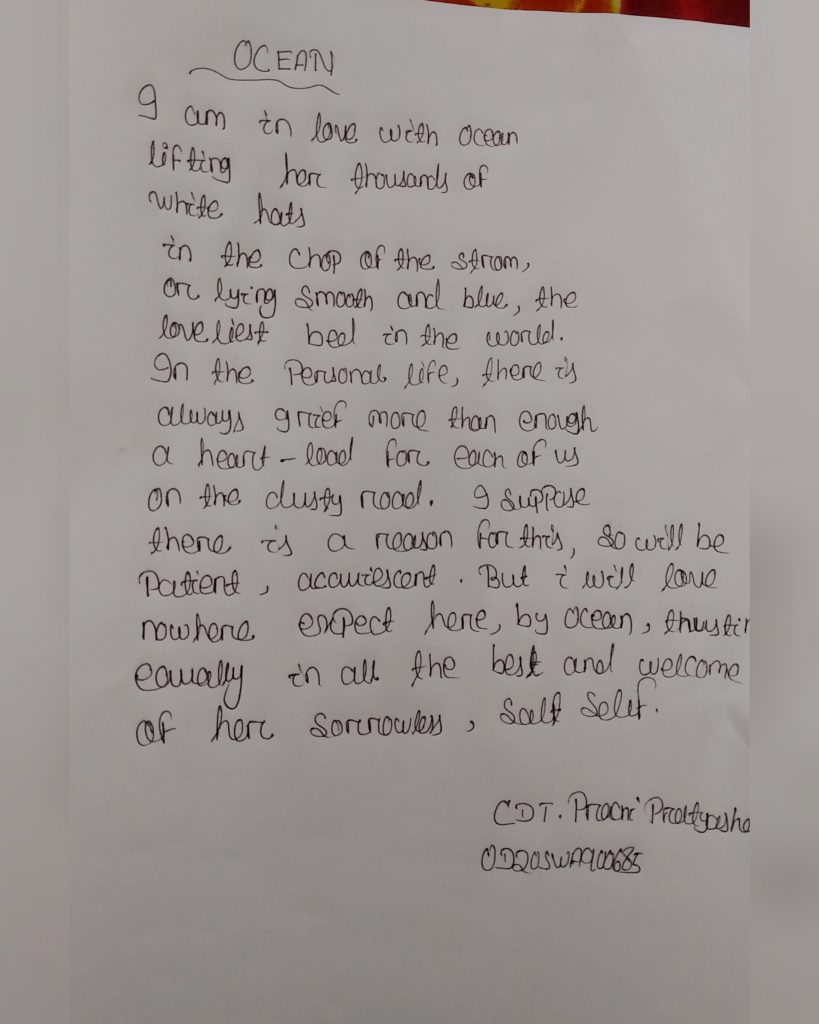 OCEAN
I am in love with ocean
lifting her thousands of
white hats
in the chop of the strom,
or lying smooth and blue, the
loveliest bed in the world.
In the Personal life, there is
always grief more than enough
a heart - load for each of us
on the dusty road. I suppose
there is a reason for this, so will be
Patient, accquiescent. But i will love
nowhere exepect here, by ocean, thrustin
equally in all the best and welcome
of her sorrowless, Salt Self.
CDT. Prachi Pratyasha
OD20SWA900685